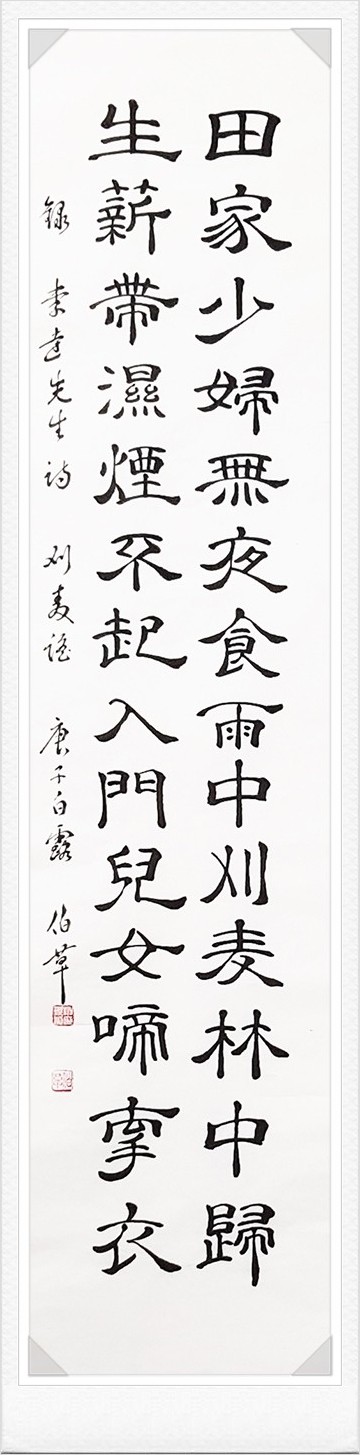 田家少婦無夜食雨中刈麦林中歸
生薪帶濕煙不起入門兒女啼牽衣
録 李達先生詩 刈麦謠 庚子白露 伯草